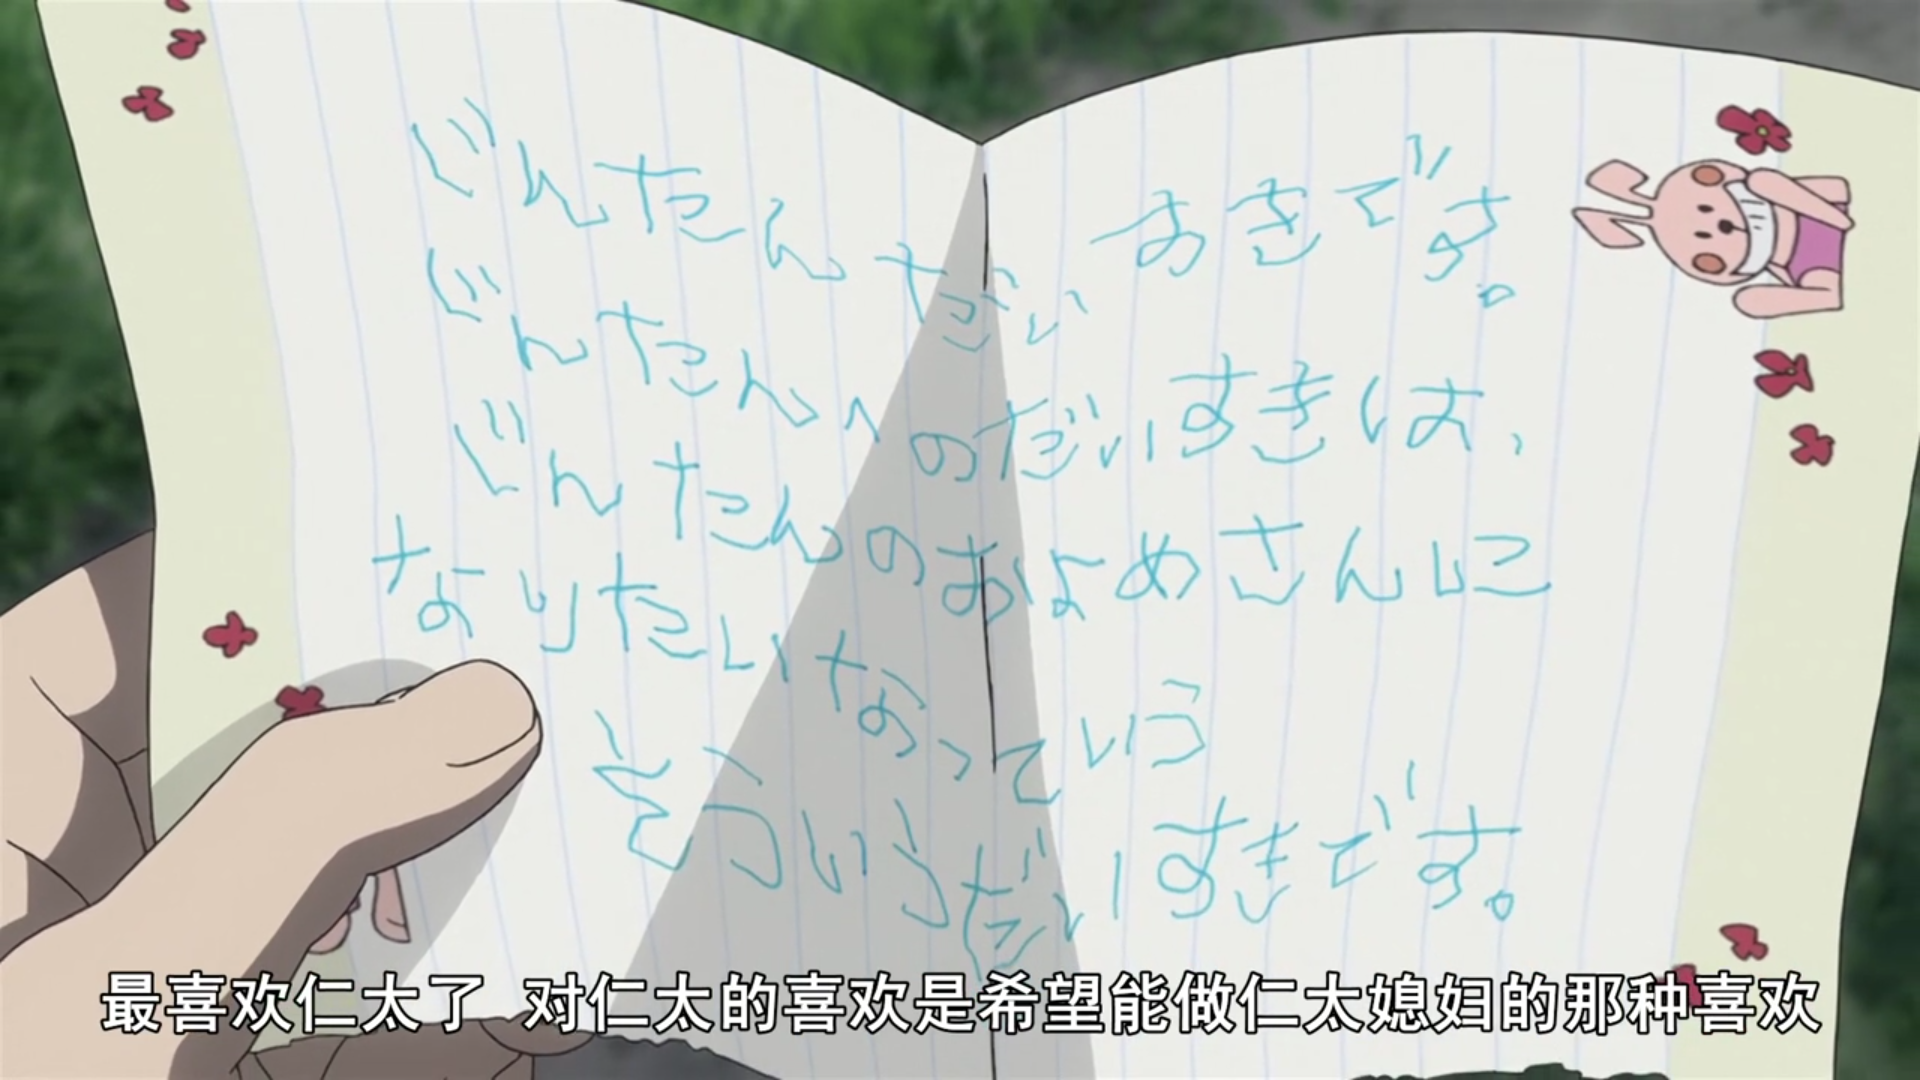 じんたんだいすきです。
じんたんへのだいすきは、
じんたんのおよめさんに
なりたいなっていう
そういうだいすきです。
最喜欢仁太了 对仁太的喜欢是希望能做仁太媳妇的那种喜欢